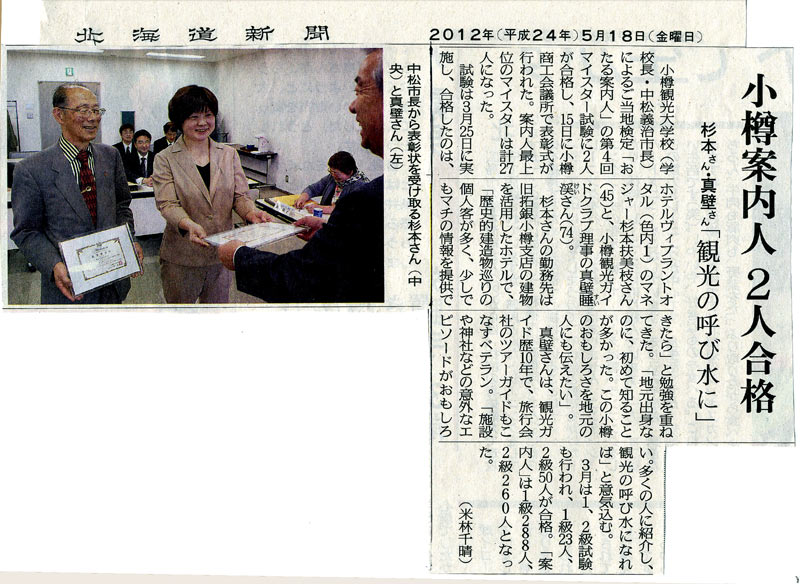 北海道新聞
2012年(平成24年)5月18日(金曜日)
小樽案内人 2人合格
杉本さん・真壁さん「観光の呼び水に」
小樽観光大学校(学
校長・中松義治市長)
によるご当地検定「お
たる案内人」の第4回
マイスター試験に2人
が合格し、15日に小樽
商工会議所で表彰式が
行われた。案内人最上
位のマイスターは計27
人になった。
試験は3月25日に実
施し、合格したのは、
ホテルヴィブラントオ
タル(色内1)のマネ
ジャー杉本扶美枝さん
(45)と、小樽観光ガイ
ドクラブ理事の真壁睡
渓さん(74)。
杉本さんの勤務先は
旧拓銀小樽支店の建物
を活用したホテルで、
「歴史的建造物巡りの
個人客が多く、少しで
もマチの情報を提供で
きたら」と勉強を重ね
てきた。「地元出身な
のに、初めて知ること
が多かった。この小樽
のおもしろさを地元の
人にも伝えたい」。
真壁さんは、観光ガ
イド歴10年で、旅行会
社のツアーガイドもこ
なすベテラン。「施設
や神社などの意外なエ
ピソードがおもしろ
い。多くの人に紹介し、
観光の呼び水になれ
ば」と意気込む。
3月は1、2級試験
も行われ、1級23人、
2級50人が合格。「案
内人」は1級288人、
2級260人となっ
た。
(米林千晴)
中松市長から表彰状を受け取る杉本さん(中
央)と真壁さん(左)